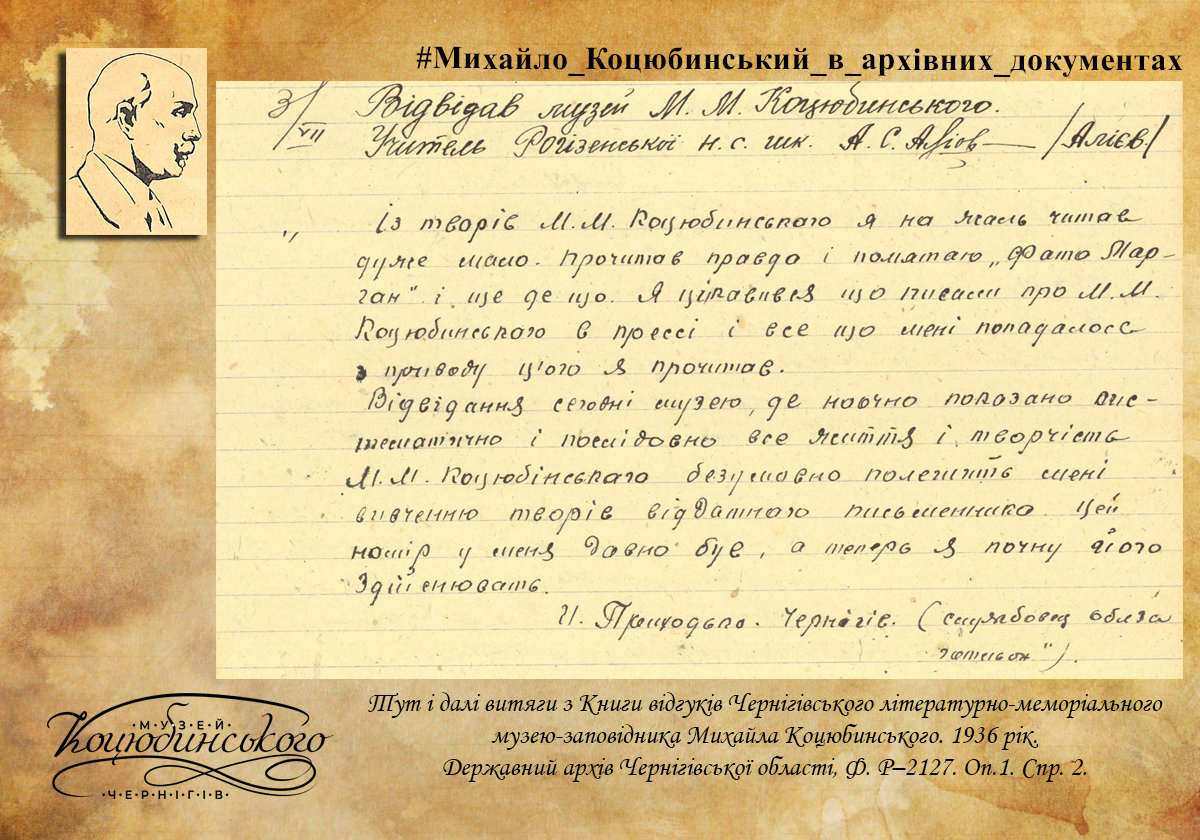 #Михайло_Коцюбинський_в_архівних_документах
3/VII Відвідав музей М. М. Коцюбинського.
Учитель Рогізенської н. с. шк. А. С. Алієв /Алієв/
„ Із творів М.М. Коцюбинськаго я на жаль читав
дуже мало. Прочитав правда і помятаю „Фата Мор-
ган" і ще де що. Я цікавився що писали про М.М.
Коцюбинськаго в прессі і все що мені попадалось
з приводу ц'ого я прочитав.
Відвідання сегодні музею, де наочно показано сис-
тематично і послідовно все життя і творчість
М.М. Коцюбінськаго безумовно полегшить мені
вивченню творів відатного письменника. Цей
намір у меня давно був, а теперь я почну його
здійснювать.
И. Приходько. Чернігів. (службовец
").
МУЗЕЙ
Коцюбинського
ЧЕРНІГІВ
Тут і далі витяги з Книги відгуків Чернігівського літературно-меморіального
музею-заповідника Михайла Коцюбинського. 1936 рік.
Державний архів Чернігівської області, Ф. Р–2127. Оп.1. Спр. 2.